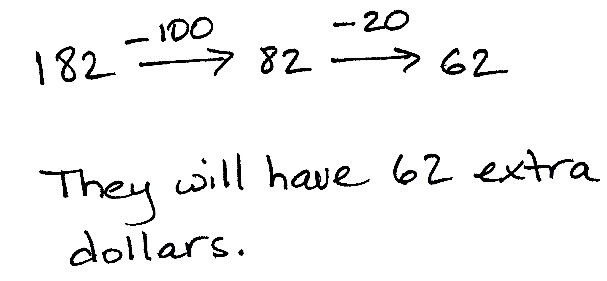 182 -100→ 82 -20→ 62
They will have 62 extra
dollars.